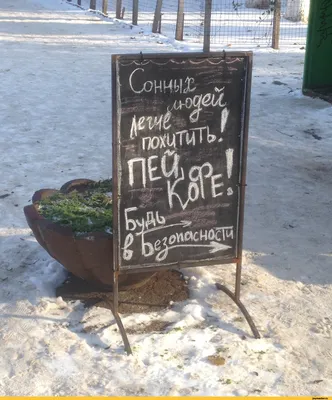 Сонных
людей
легче
похитить!
ПЕЙ
КОФЕ!
Будь
в Безопасности